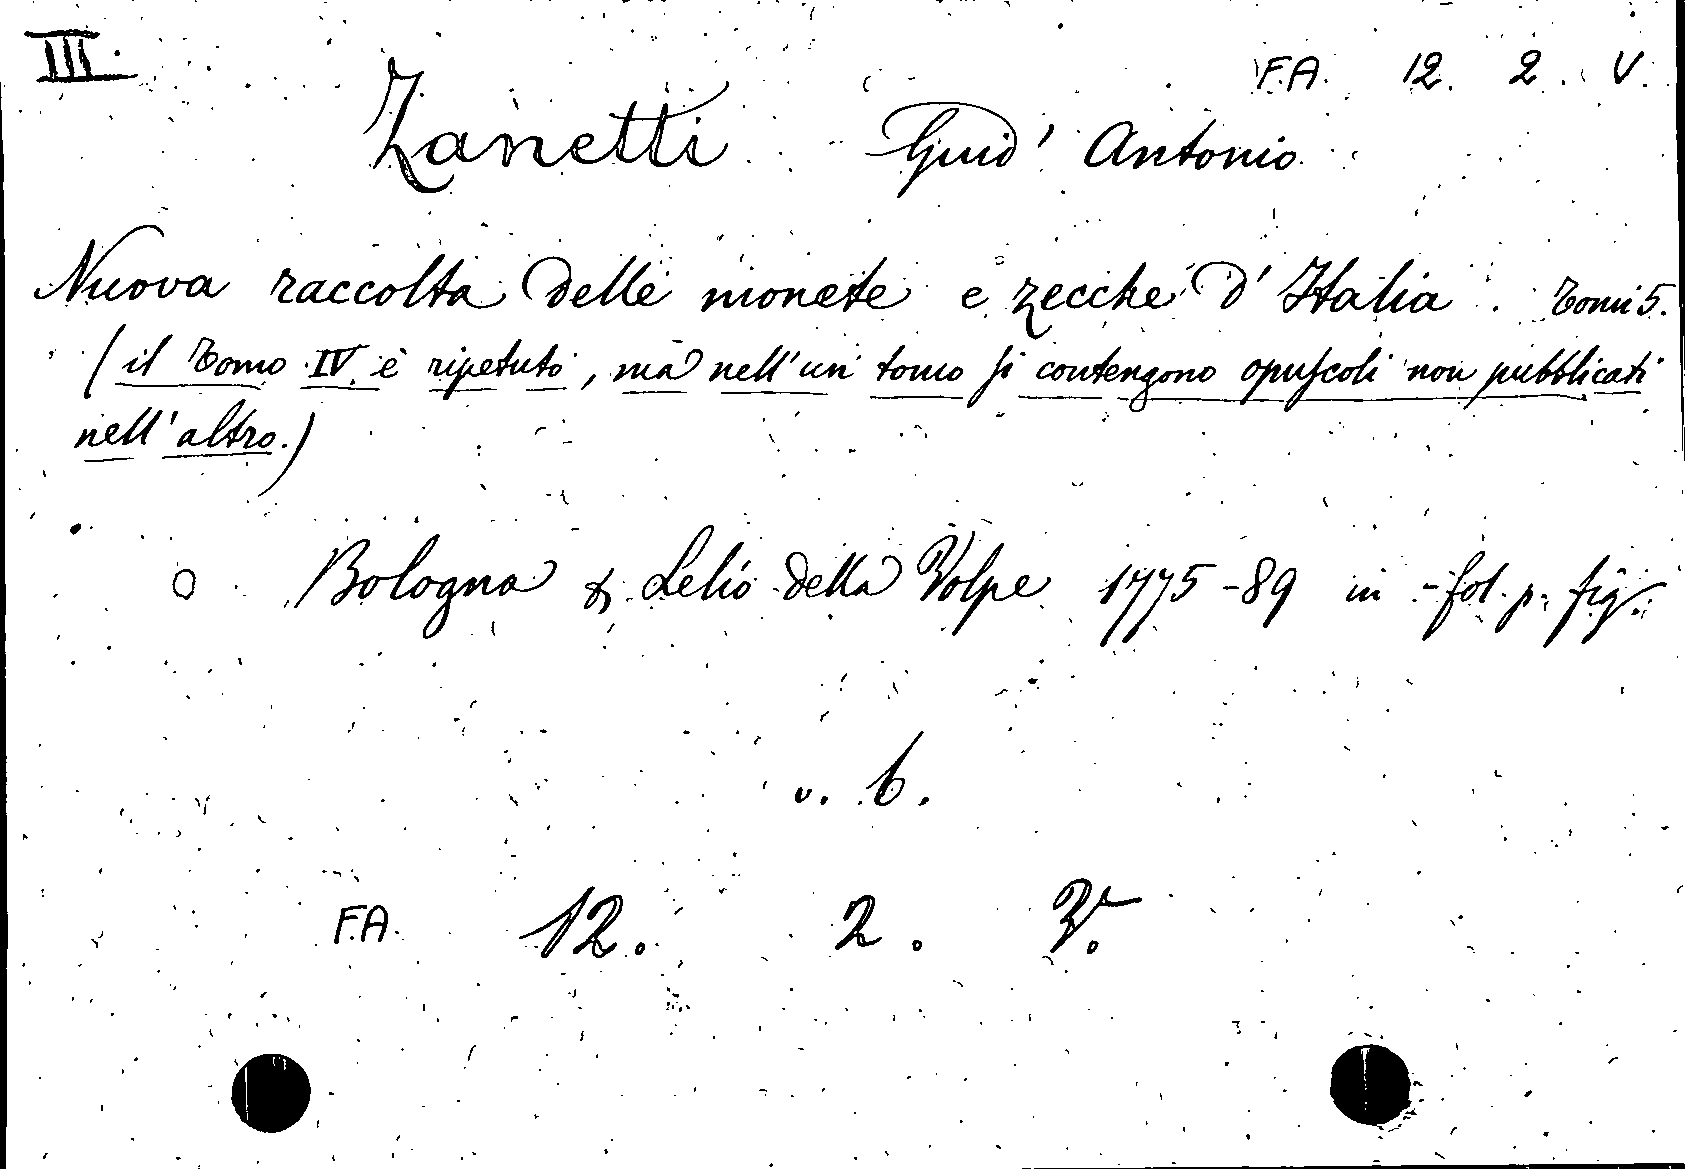 III.
F.A. 12. 2. V.
Zanetti Guid' Antonio
Nuova raccolta delle monete e zecche d' Italia. Tomi 5.
(il Tomo IV è ripetuto, ma nell'un tomo si contengono opuscoli non pubblicati
nell'altro.)
Bologna Lelio della Volpe 1775-89 in-fol. p. fig.
v. 6.
F.A. 12. 2. V.